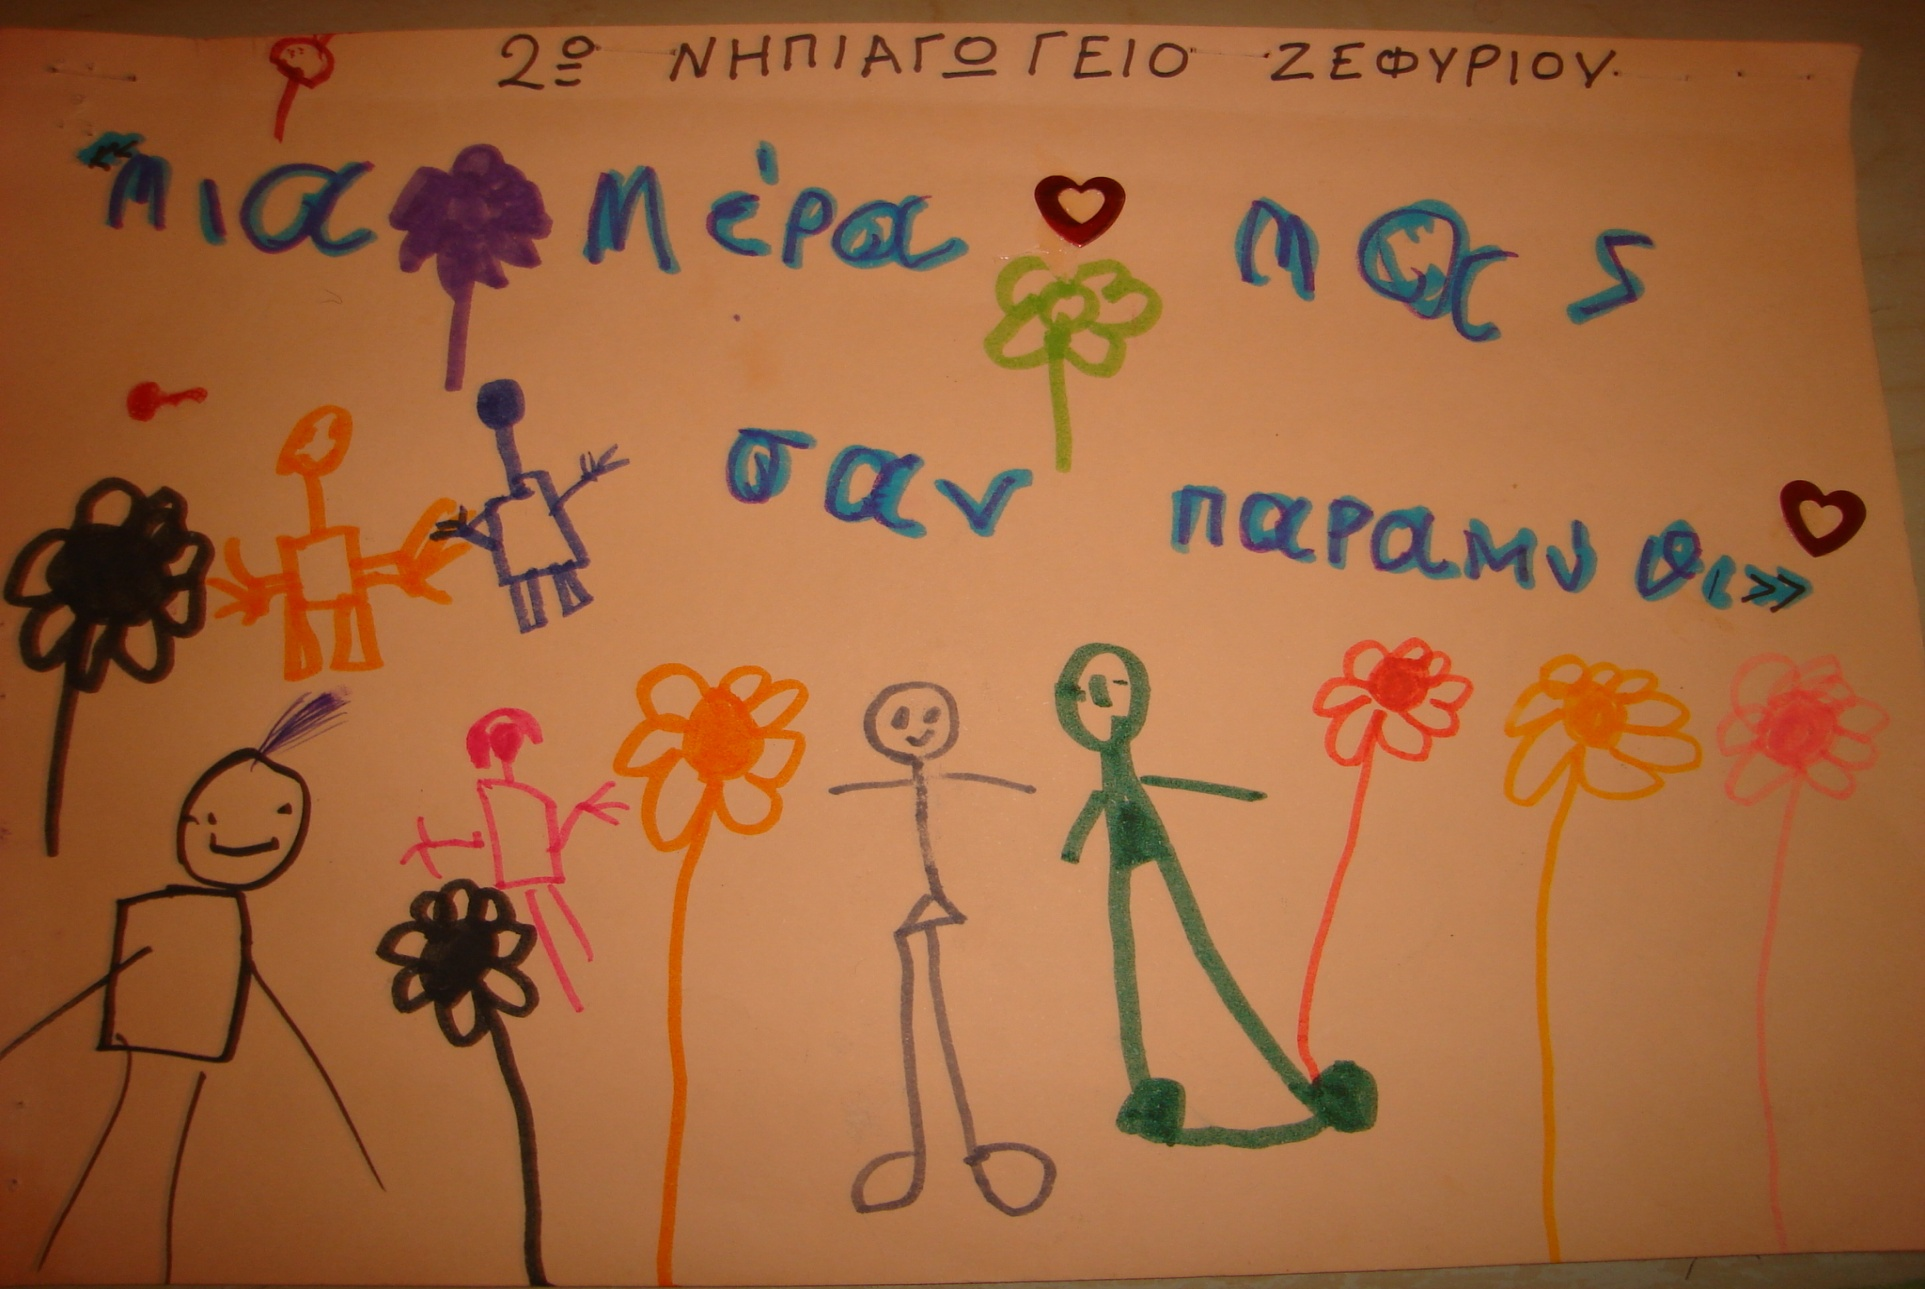 2ο ΝΗΠΙΑΓΩΓΕΙΟ ΖΕΦΥΡΙΟΥ
«μια μέρα μας
σαν παραμυθι»